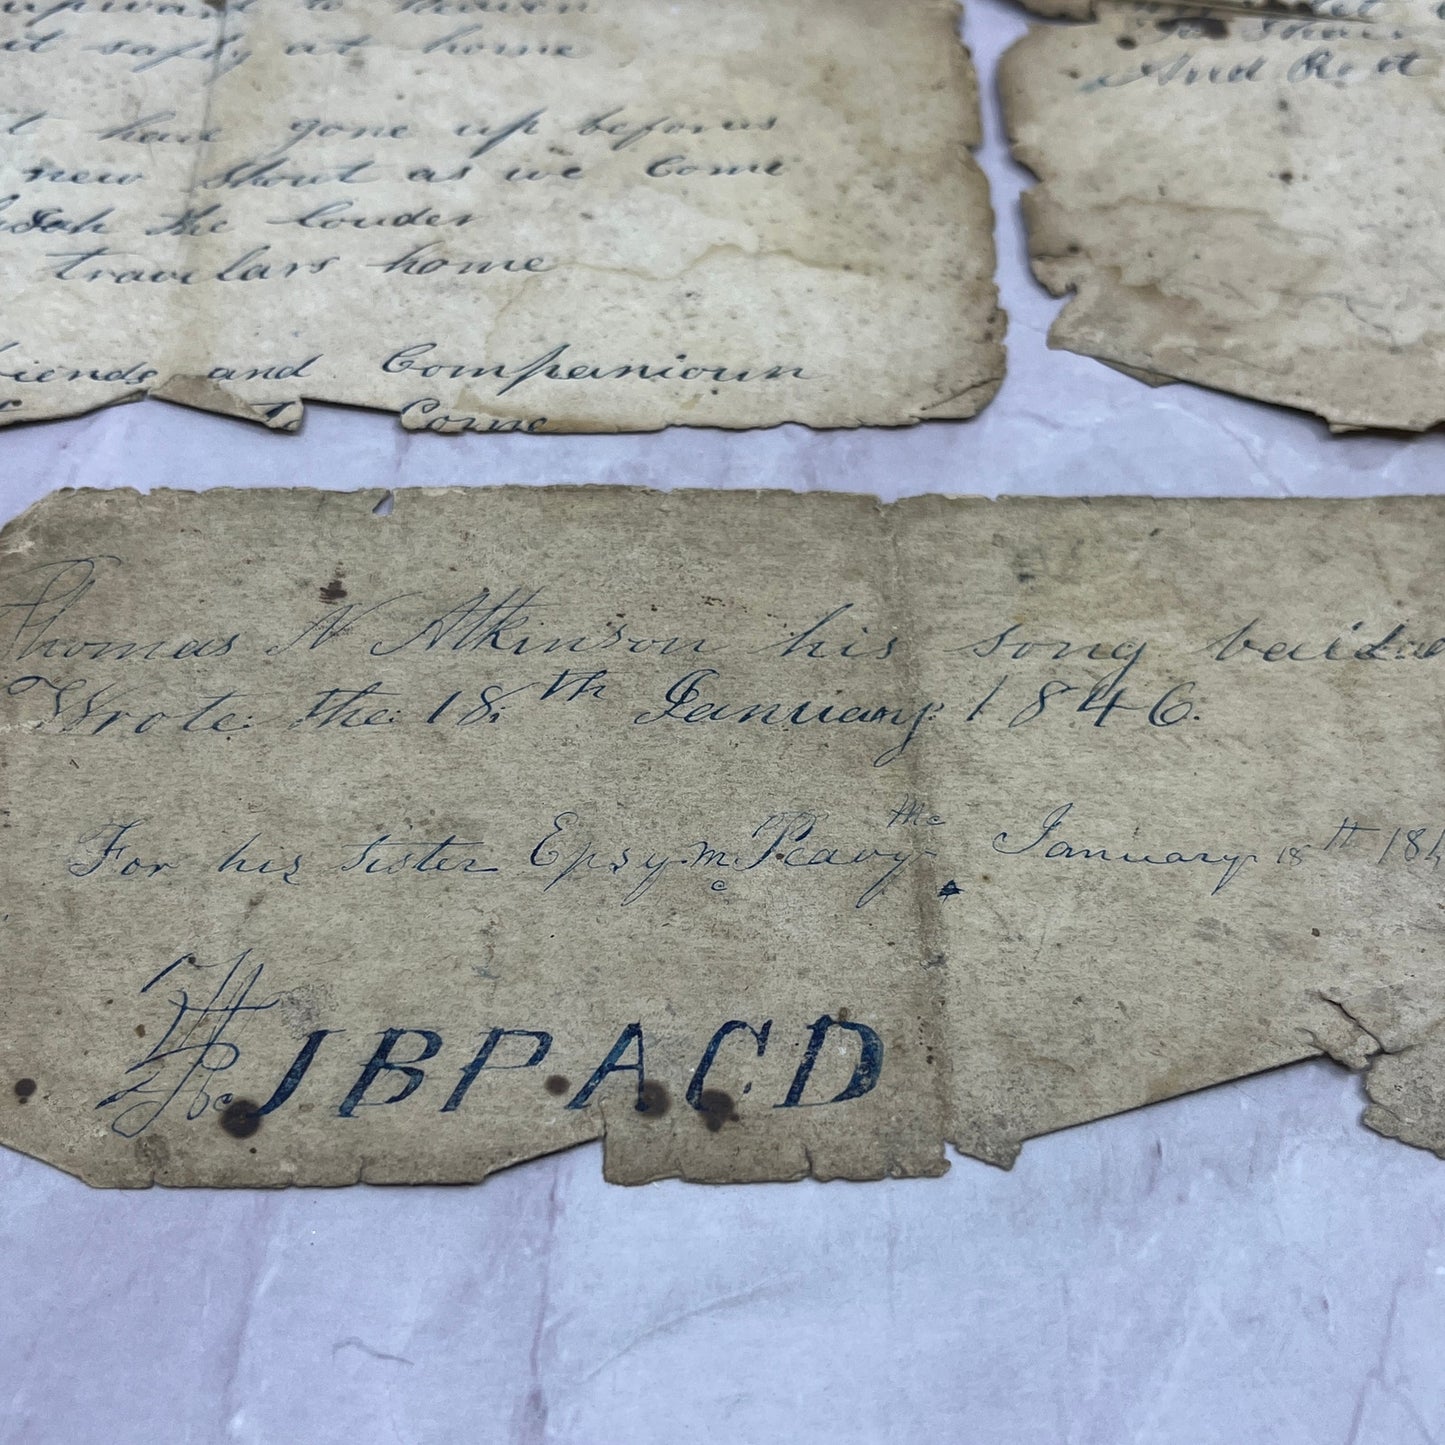 upward to heaven
safly at home
have gone up before us
new shout as we Come
the louder
travelars home
and Companioun
To Come
To Shair
And Rest
Thomas N Atkinson his song
Wrote: the: 18th January: 1846.
For his sister Epsy Mc Peavy Mc January 18th 184
J B P A C D